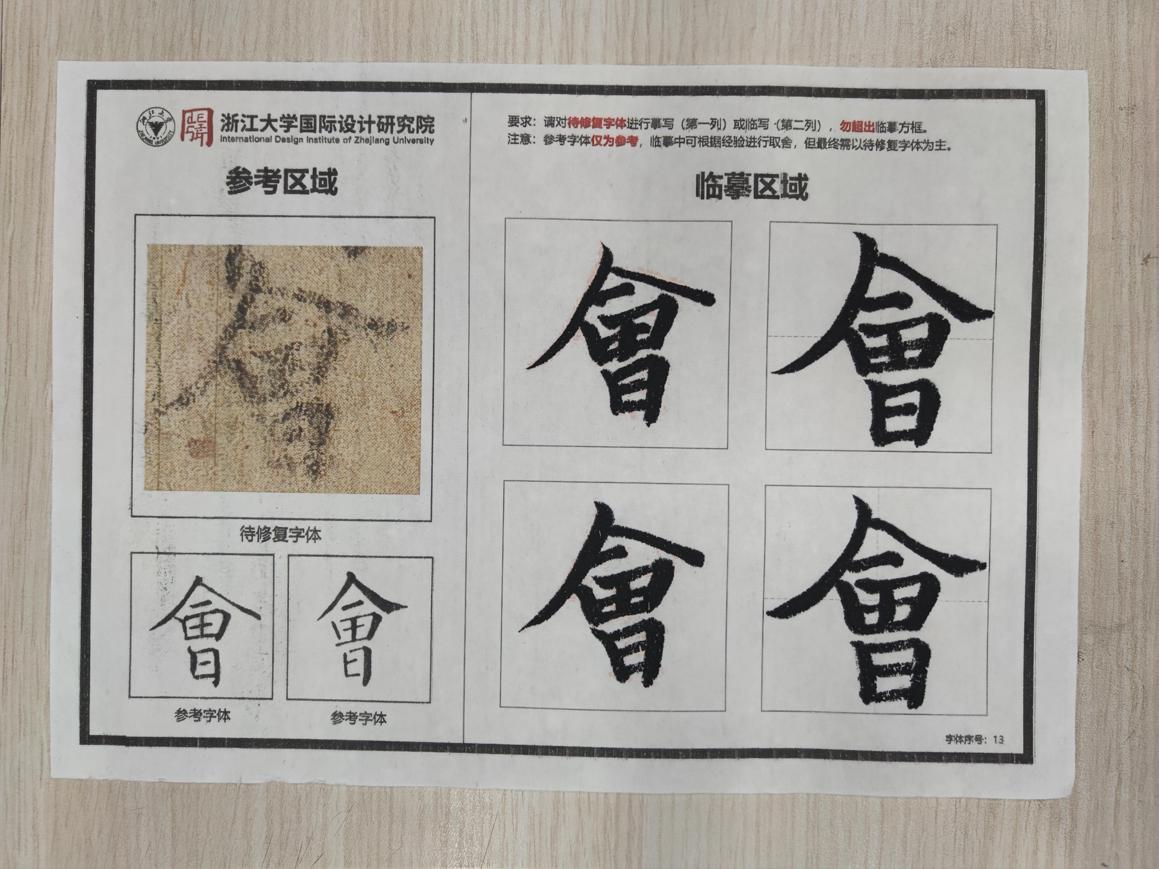 浙江大学国际设计研究院
International Design Institute of Zhejiang University
参考区域
會
待修复字体
會 會
参考字体 参考字体
要求：请对待修复字体进行摹写（第一列）或临写（第二列），勿超出临摹方框。
注意：参考字体仅为参考，临摹中可根据经验进行取舍，但最终需以待修复字体为主。
临摹区域
會 會
會 會
字体序号：13